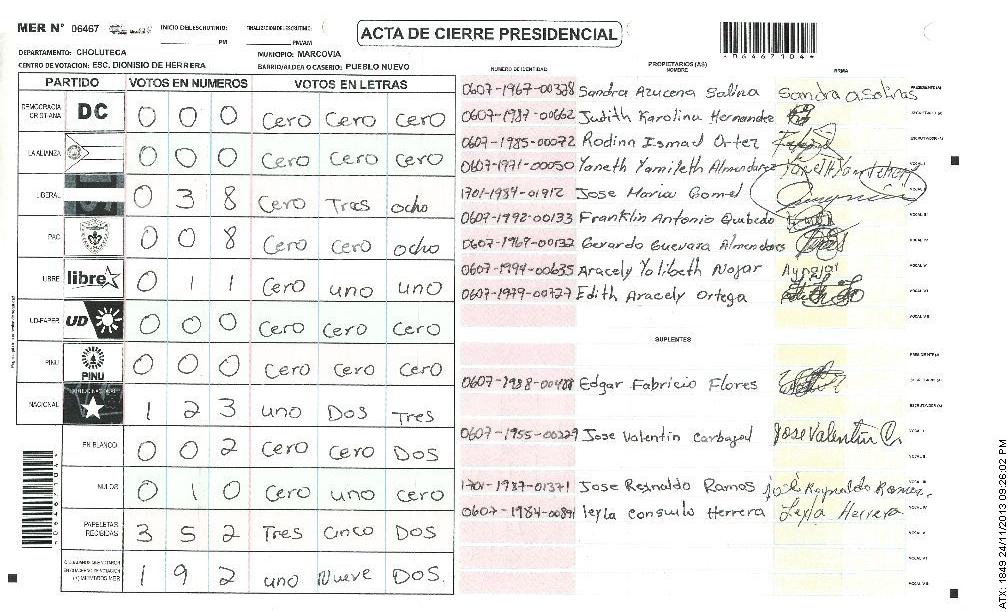 MER N° 06467 INICIO DEL ESCRUTINIO: PM FINALIZACION DEL ESCRUTINIO: PM/AM
ACTA DE CIERRE PRESIDENCIAL
*06467104*
DEPARTAMENTO: CHOLUTECA MUNICIPIO: MARCOVIA
CENTRO DE VOTACION: ESC. DIONISIO DE HERRERA BARRIO/ALDEA O CASERIO: PUEBLO NUEVO
PARTIDO VOTOS EN NUMEROS VOTOS EN LETRAS
DEMOCRACIA CRISTIANA DC 0 0 0 Cero Cero Cero
LA ALIANZA 0 0 0 Cero Cero Cero
LIBERAL 0 3 8 Cero Tres ocho
PAC 0 0 8 Cero Cero ocho
LIBRE libre 0 1 1 Cero uno uno
UD-FAPER UD 0 0 0 Cero Cero Cero
PINU PINU 0 0 0 Cero Cero Cero
NACIONAL 1 2 3 uno Dos Tres
EN BLANCO 0 0 2 Cero Cero Dos
NULOS 0 1 0 Cero uno Cero
PAPELETAS RECIBIDAS 3 5 2 Tres Cinco Dos
1 9 2 uno Nueve Dos.
NUMERO DE IDENTIDAD PROPIETARIOS (AS) NOMBRE FIRMA
0607-1967-00328 Sandra Azucena Salina Sandra a Solinas PRESIDENTE(A)
0607-1987-00662 Judith Karolina Hernandez SECRETARIO(A)
0607-1985-00072 Rodinn Ismad Ortez ESCRUTADOR(A)
0607-1971-00050 Yaneth Yamileth Almendarez VOCAL I
1701-1984-01912 Jose Maria Gomel VOCAL II
0607-1992-00133 Franklin Antonio Quibedo VOCAL III
0607-1969-00132 Gerardo Guevara Almendares VOCAL IV
0607-1994-00635 Aracely Yolibeth Nojar VOCAL V
0607-1979-00727 Edith Aracely Ortega VOCAL VI
VOCAL VII
SUPLENTES
PRESIDENTE(A)
0607-1988-00488 Edgar Fabricio Flores SECRETARIO(A)
ESCRUTADOR(A)
0607-1955-00229 Jose Valentin Carbajal Jose Valentin C. VOCAL I
VOCAL II
1701-1987-01371 Jose Reynaldo Ramos José Reynaldo Ramos. VOCAL III
0607-1984-00891 leyla Consuelo Herrera Leyla Herrera VOCAL IV
VOCAL V
VOCAL VI
VOCAL VII
*06467104*
ATX: 1849 24/11/2013 09:26:02 PM